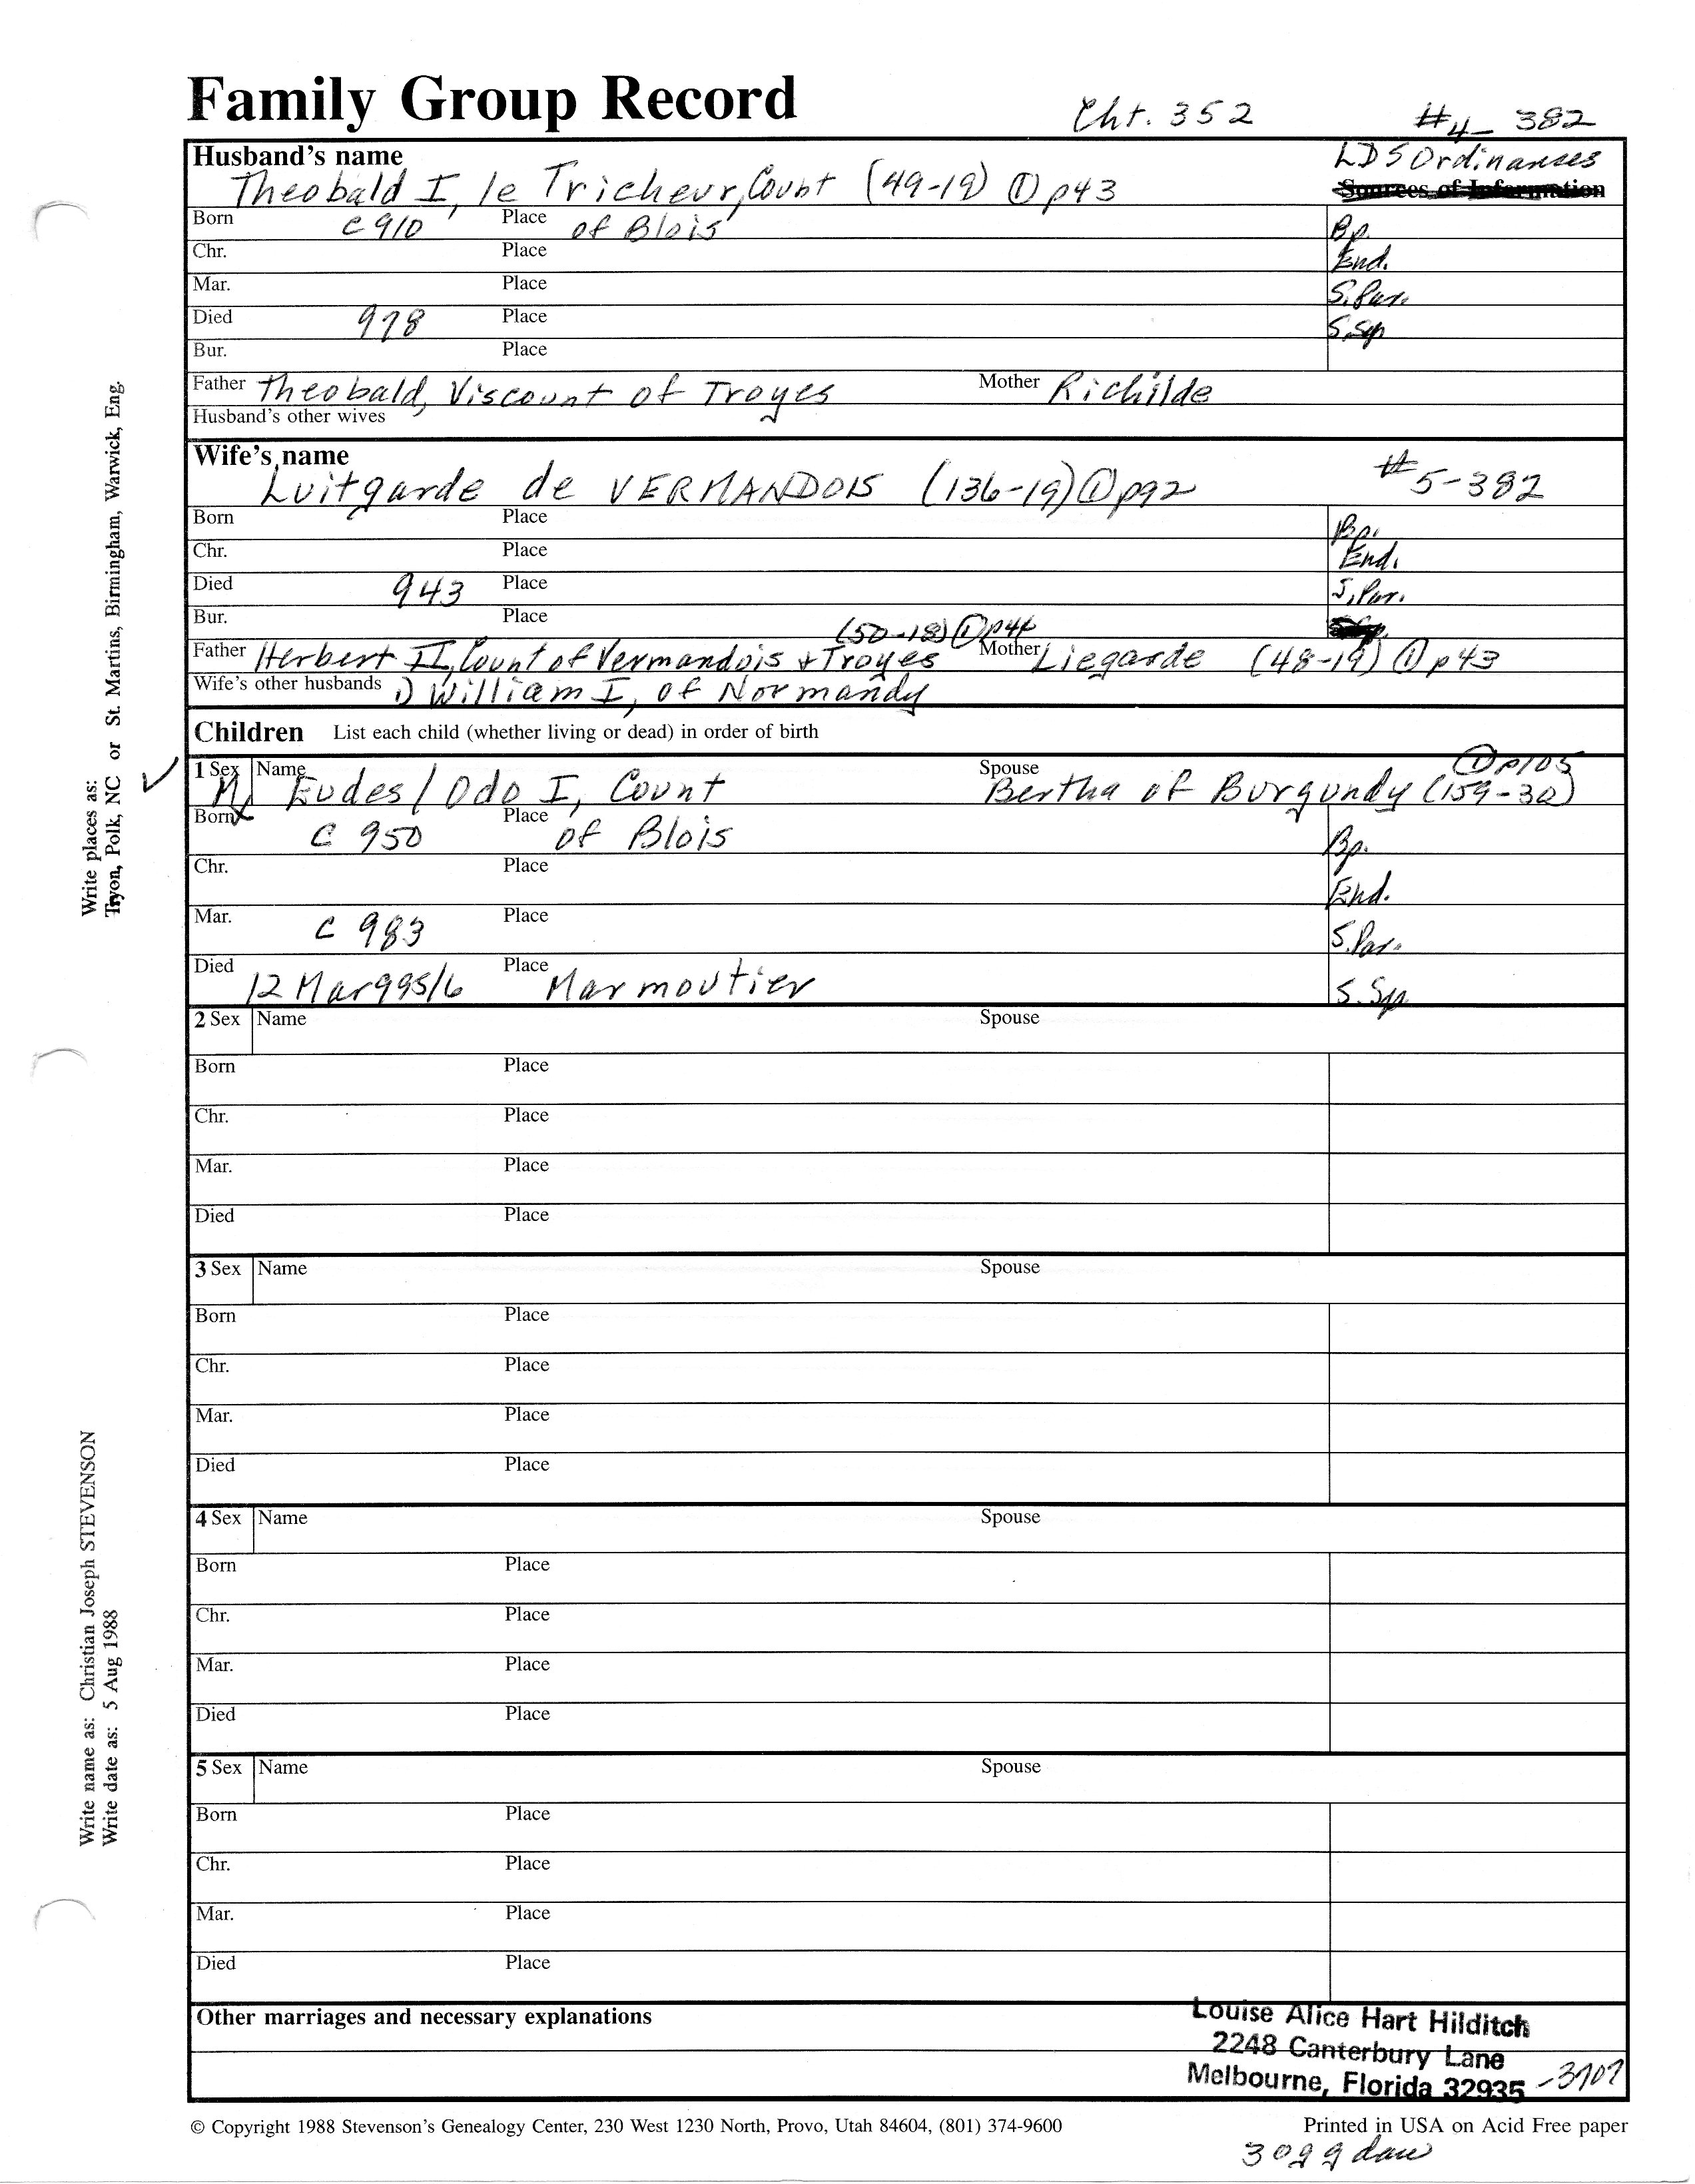 Family Group Record Cht. 352 #4-382
Husband's name LDS Ordinanses
Theobald I, le Tricheur, Count (49-19) ① p43 Sources of Information
Born c 910 Place of Blois Bp.
Chr. Place End.
Mar. Place S. Par.
Died 978 Place S. Sp
Bur. Place
Father Theobald, Viscount of Troyes Mother Richilde
Husband's other wives
Wife's name
Luitgarde de VERMANDOIS (136-19) ① p92 #5-382
Born Place Bp.
Chr. Place End.
Died 943 Place S. Par.
Bur. Place
(50-18) ① p44
Father Herbert II, Count of Vermandois + Troyes Mother Liegarde (48-19) ① p43
Wife's other husbands 1) William I, of Normandy
Children List each child (whether living or dead) in order of birth
① p105
1 Sex M Name Eudes / Odo I, Count Spouse Bertha of Burgundy (159-30)
Born c 950 Place of Blois Bp.
Chr. Place End.
Mar. c 983 Place S. Par.
Died 12 Mar 995/6 Place Marmoutier S. Sp.
2 Sex Name Spouse
Born Place
Chr. Place
Mar. Place
Died Place
3 Sex Name Spouse
Born Place
Chr. Place
Mar. Place
Died Place
4 Sex Name Spouse
Born Place
Chr. Place
Mar. Place
Died Place
5 Sex Name Spouse
Born Place
Chr. Place
Mar. Place
Died Place
Other marriages and necessary explanations
Louise Alice Hart Hilditch
2248 Canterbury Lane
Melbourne, Florida 32935 -3707
© Copyright 1988 Stevenson's Genealogy Center, 230 West 1230 North, Provo, Utah 84604, (801) 374-9600 Printed in USA on Acid Free paper
30gg dau
Write places as:
Tryon, Polk, NC or St. Martins, Birmingham, Warwick, Eng.
Write name as: Christian Joseph STEVENSON
Write date as: 5 Aug 1988